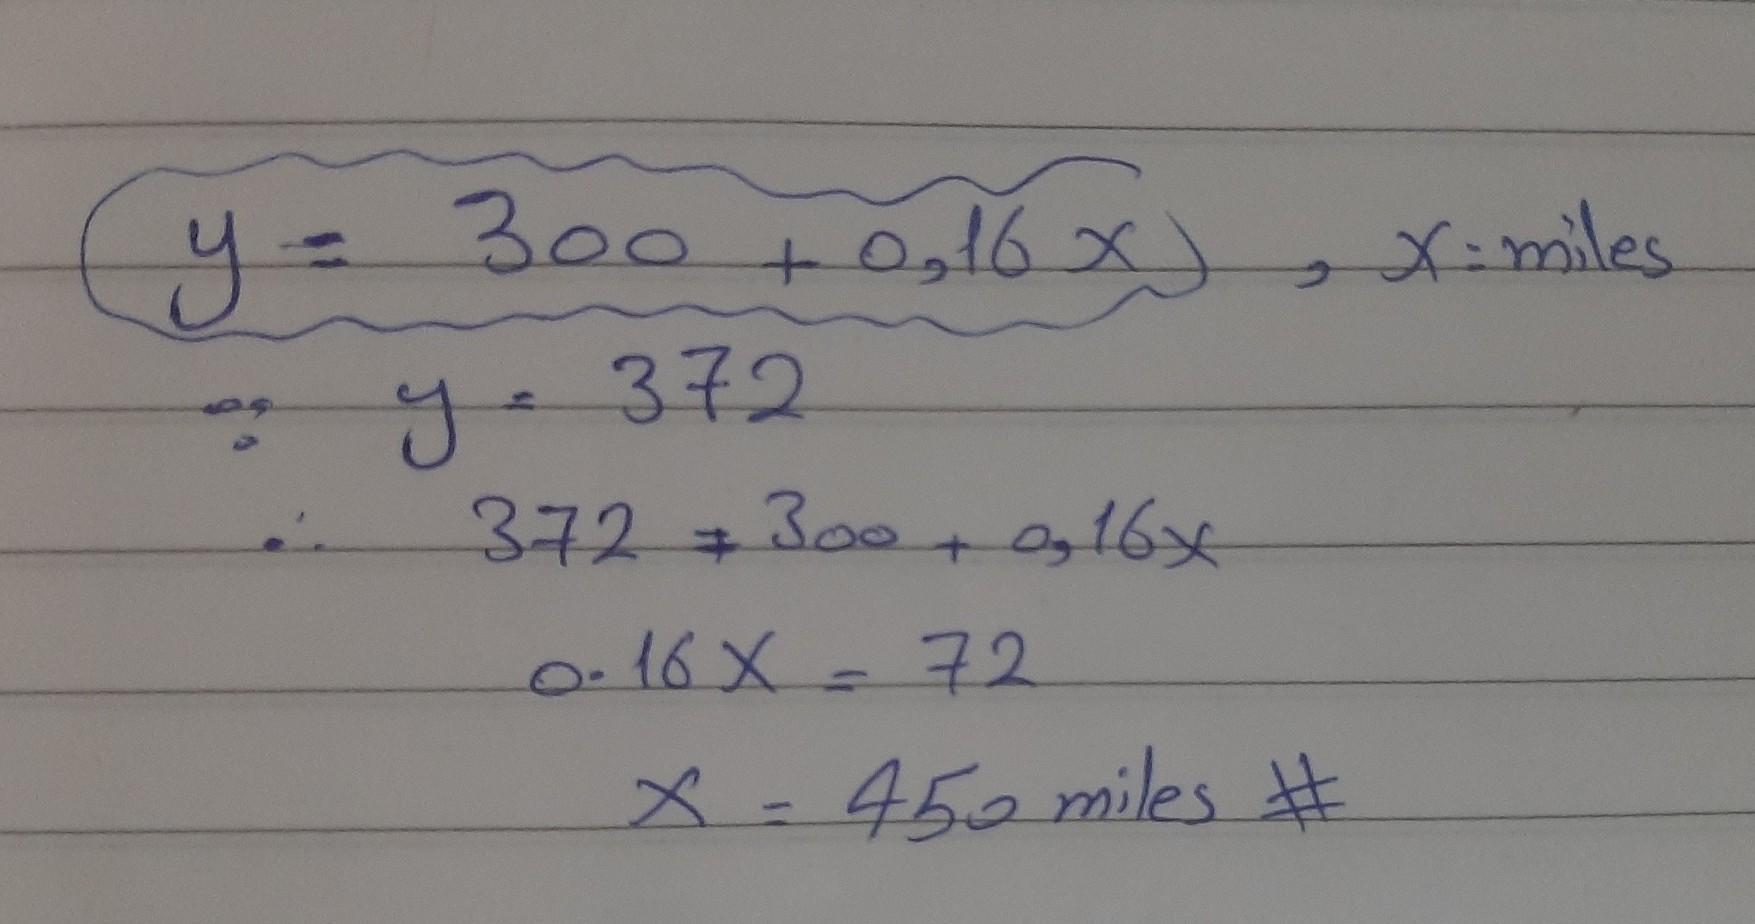 y = 300 + 0,16x , x = miles
∵ y = 372
∴ 372 = 300 + 0,16x
0.16x = 72
x = 450 miles #